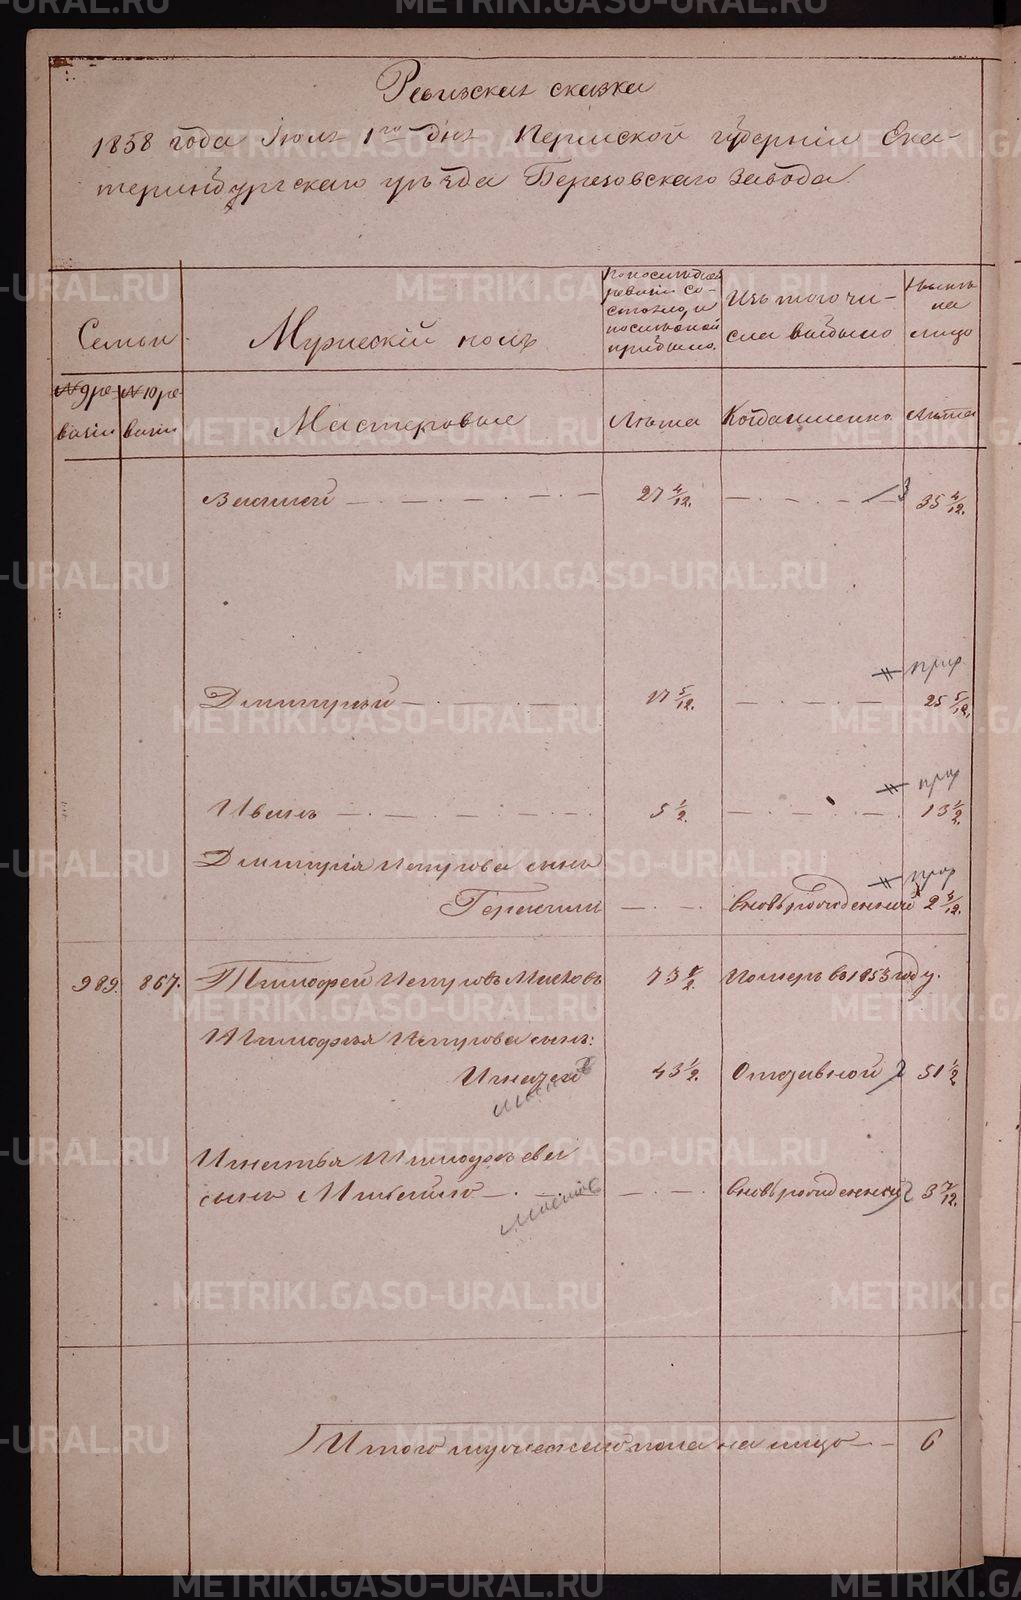 Ревизская сказка
1858 года Июля 1го дня Пермской губернiи Ека-
теринбургскаго уѣзда Березовскаго Завода.
Семьи
Мужескiй полъ
По последней
ревизiи со-
стояло, и
послѣ оной
прибыло.
Изъ того чи-
сла выбыло
Нынѣ
на
лицо
№ 9 ре-
визiи
№ 10 ре-
визiи
Мастеровые
Лѣта
Когда именно
Лѣта
Василей 27 4/12. 3 35 4/12.
Дмитрей 17 5/12. 25 5/12.
Иванъ 5 1/2. 13 1/2.
Дмитрiя Петрова сынъ
Герасим вновьрожденный 2 4/12.
989. 867. Тимофей Петровъ 73 1/2. Померъ въ 1853 году.
Тимофея Петрова сынъ:
Игнатей 43 1/2. 51 1/2
Игнатья Тимофѣева
сынъ вновьрожденный 3 7/12.
Итого мужескаго пола на лицо 6
METRIKI.GASO-URAL.RU